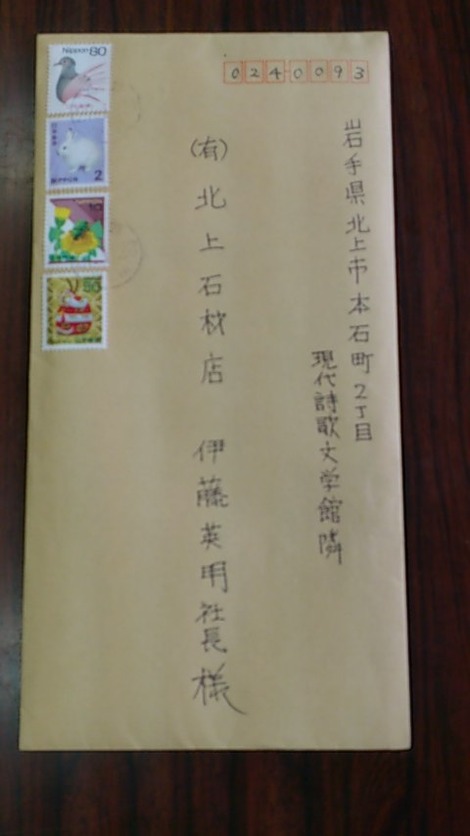 0240093
岩手県北上市本石町2丁目
現代詩歌文学館隣
(有)北上石材店 伊藤英明社長様
Nippon 80
NIPPON 2